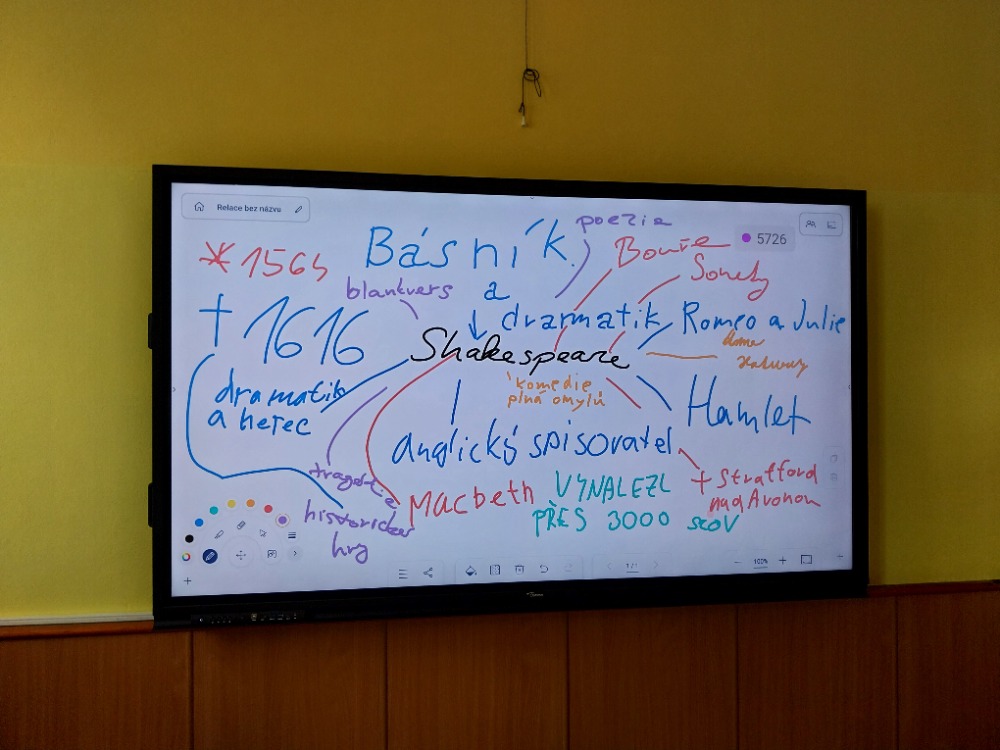 Relace bez názvu
5726
poezie
Básník
a
dramatik
Bouře
Sonety
*1564
†1616
blankvers
Shakespeare
Romeo a Julie
komedie
plná omylů
dramatik
a herec
Hamlet
anglický spisovatel
tragédie
Macbeth
historické
hry
VYNALEZL
PŘES 3000 SLOV
+ Stratford
nad Avonou
100%